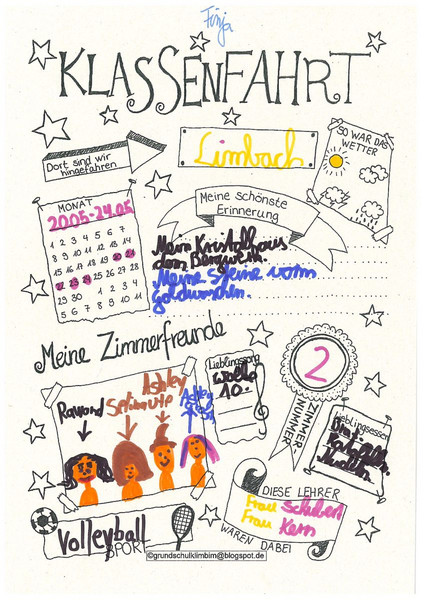 Finja
KLASSENFAHRT
Dort sind wir
hingefahren
Limbach
SO WAR DAS
WETTER
MONAT
20.05-24.05
1 2 3 4 5 6 7
8 9 10 11 12 13 14
15 16 17 18 19 20 21
22 23 24 25 26 27 28
29 30 1 2 3 4
5 6 7 8 9 10 11
Meine schönste
Erinnerung
Mein Kristallhaus
dem Bergwerk.
Meine Steine vom
Goldwaschen.
Meine Zimmerfreunde
Ashley
Lieblingssong
Wolke
10.
2
ZIMMER-
NUMMER
Lieblingsessen
Nudeln
DIESE LEHRER
Frau Schubert
Frau Kern
WAREN DABEI
Volleyball
SPORT
©grundschulklimbim@blogspot.de